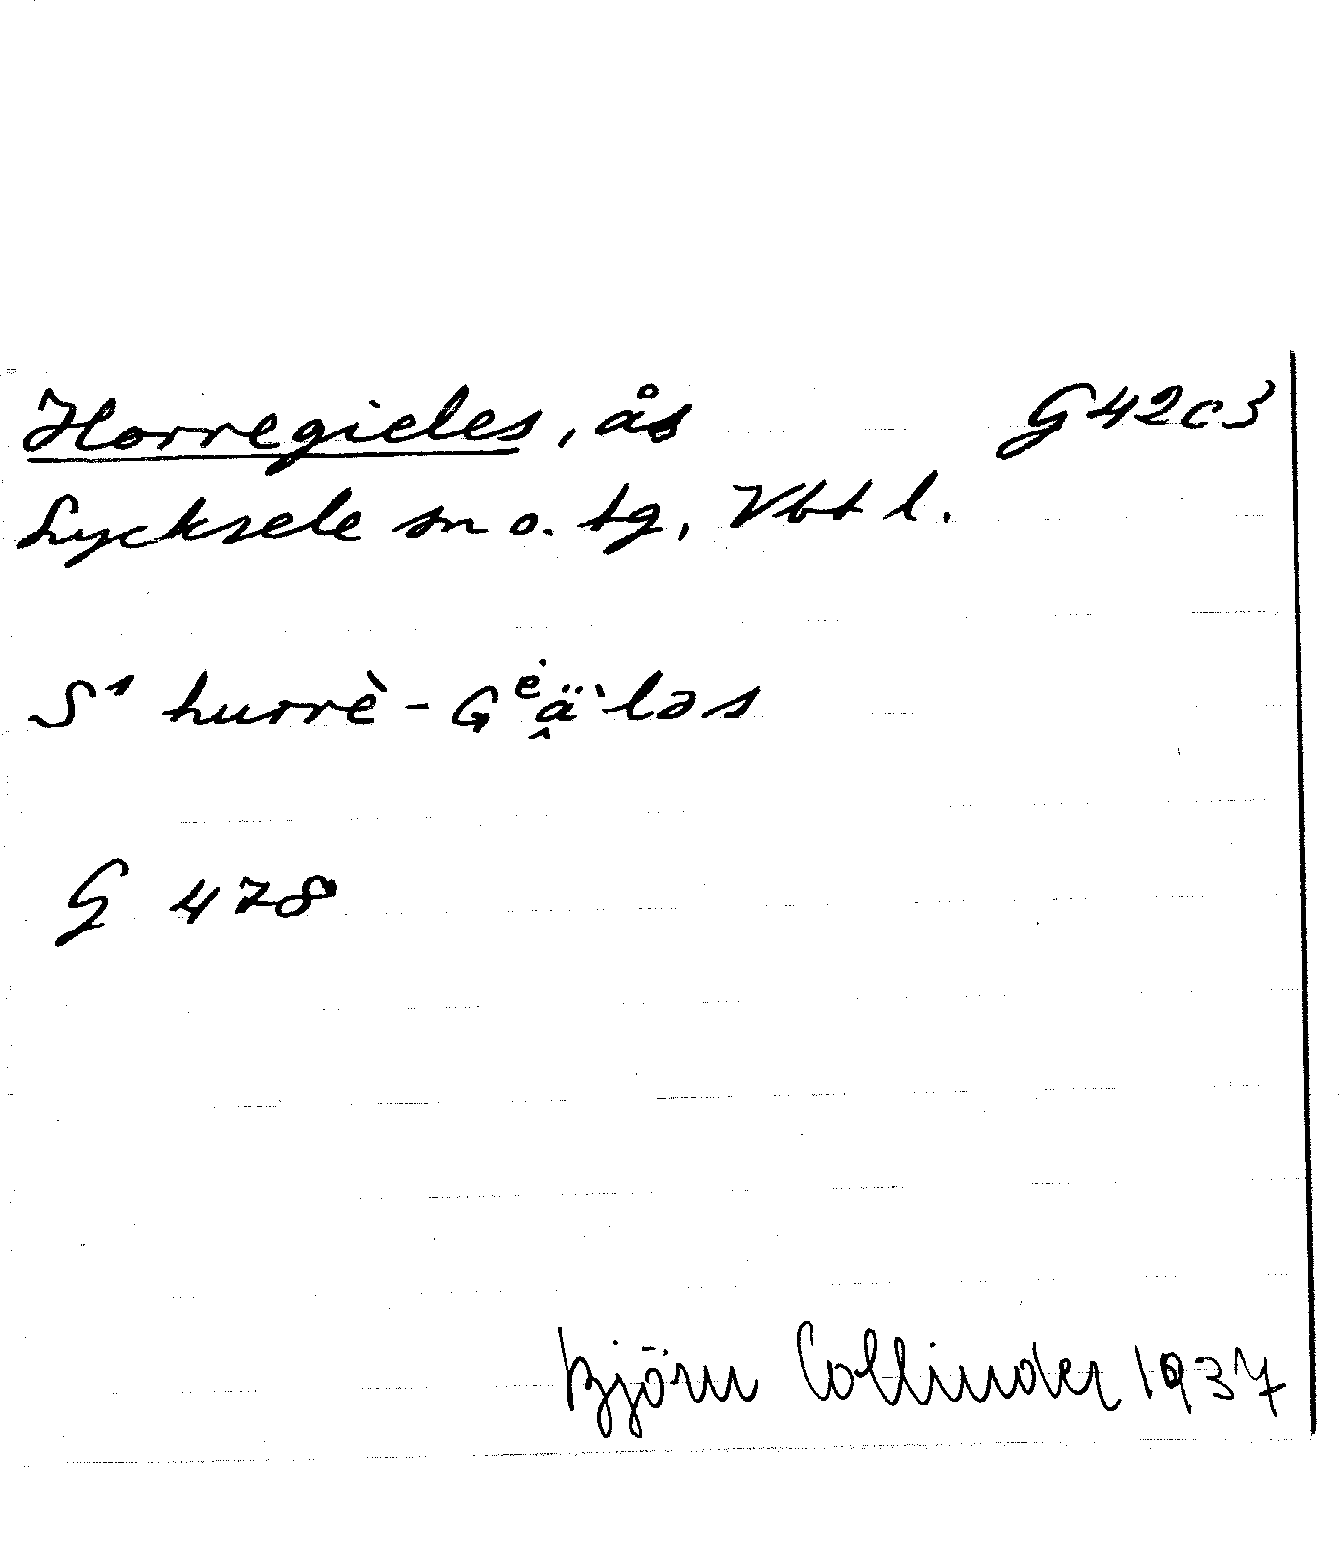 Horregieles, ås G42c3
Lycksele sn o. tg, Vbt l.
S¹ hurrè - Gᵉ̇ä̭̀ləs
G 478
Björn Collinder 1937